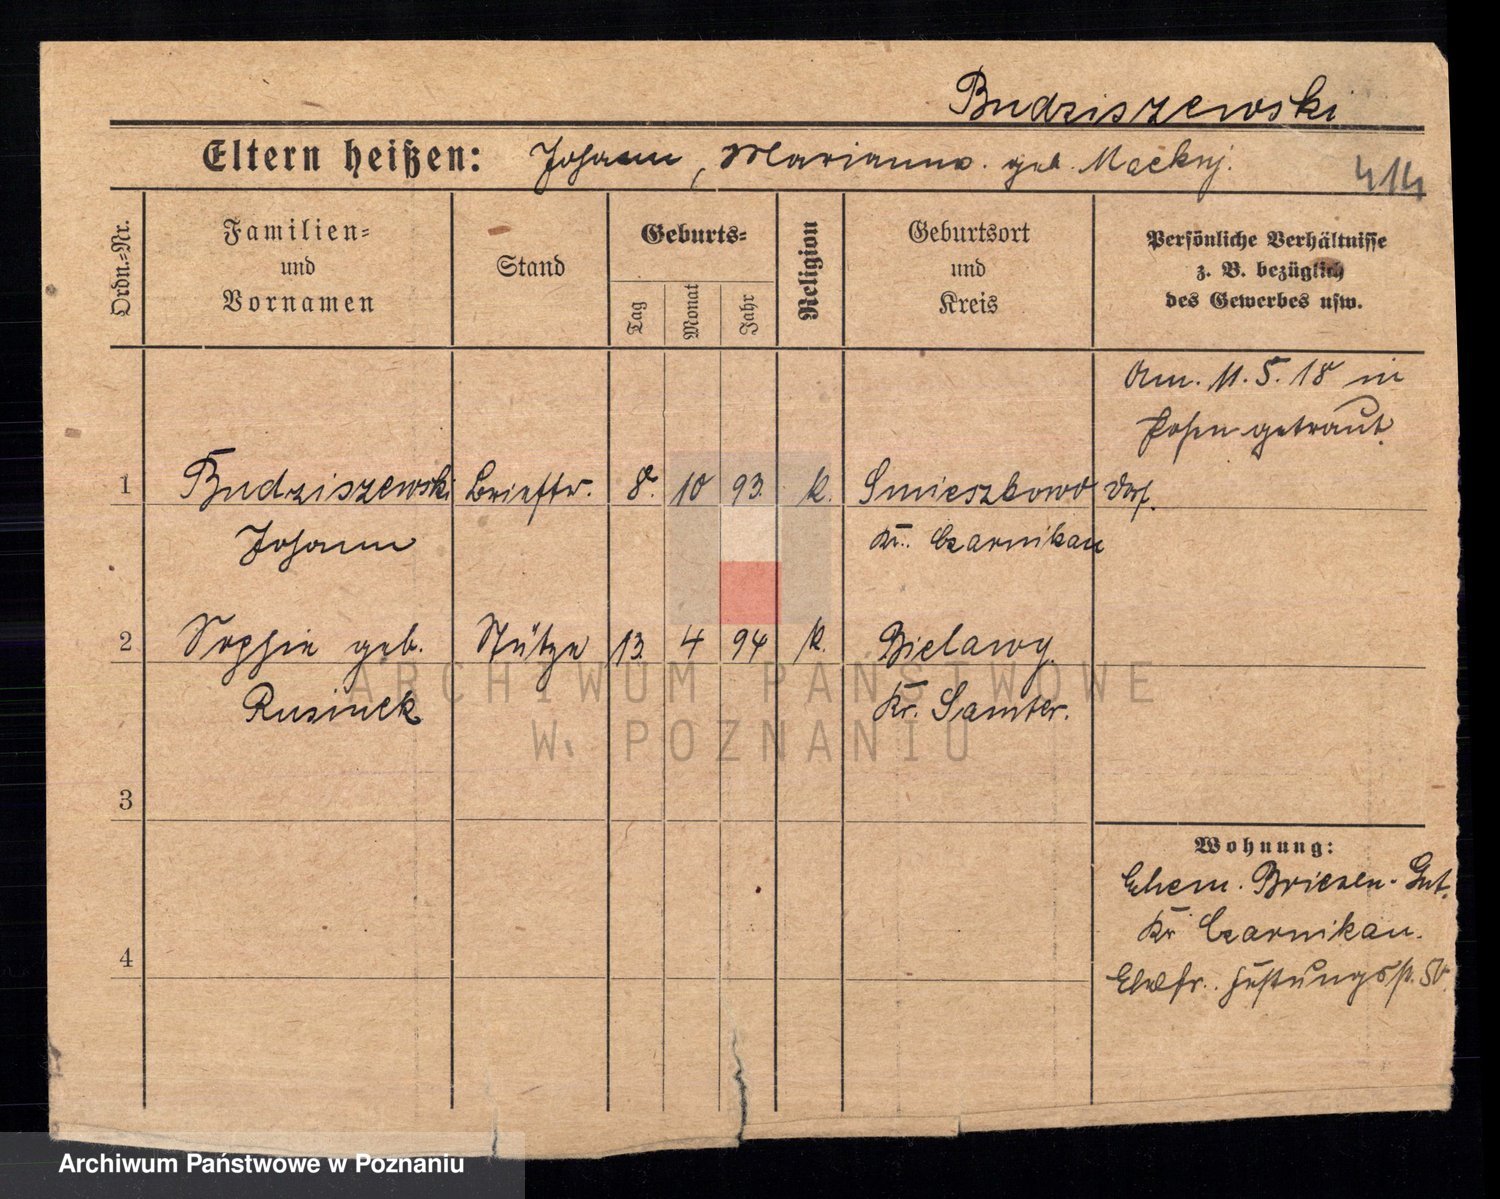 Budziszewski
Eltern heißen: Johann, Marianna geb. Maćkuj.
414
Ordn.-Nr.
Familien-
und
Vornamen
Stand
Geburts-
Tag
Monat
Jahr
Religion
Geburtsort
und
Kreis
Persönliche Verhältnisse
z. B. bezüglich
des Gewerbes usw.
Am. 11. 5. 18 in
Posen getraut.
1 Budziszewski Brieftr. 8. 10 93. k. Smieszkowo Dorf.
Johann Kr. Czarnikau
2 Sophie geb. Stütze 13. 4 94 k. Bielawy.
Rusinek Kr. Samter.
3
Wohnung:
Ehem. Briesen. Gut.
Kr Czarnikau.
4
Ehefr. Festungsstr. 50.
ARCHIWUM PAŃSTWOWE
W POZNANIU
Archiwum Państwowe w Poznaniu